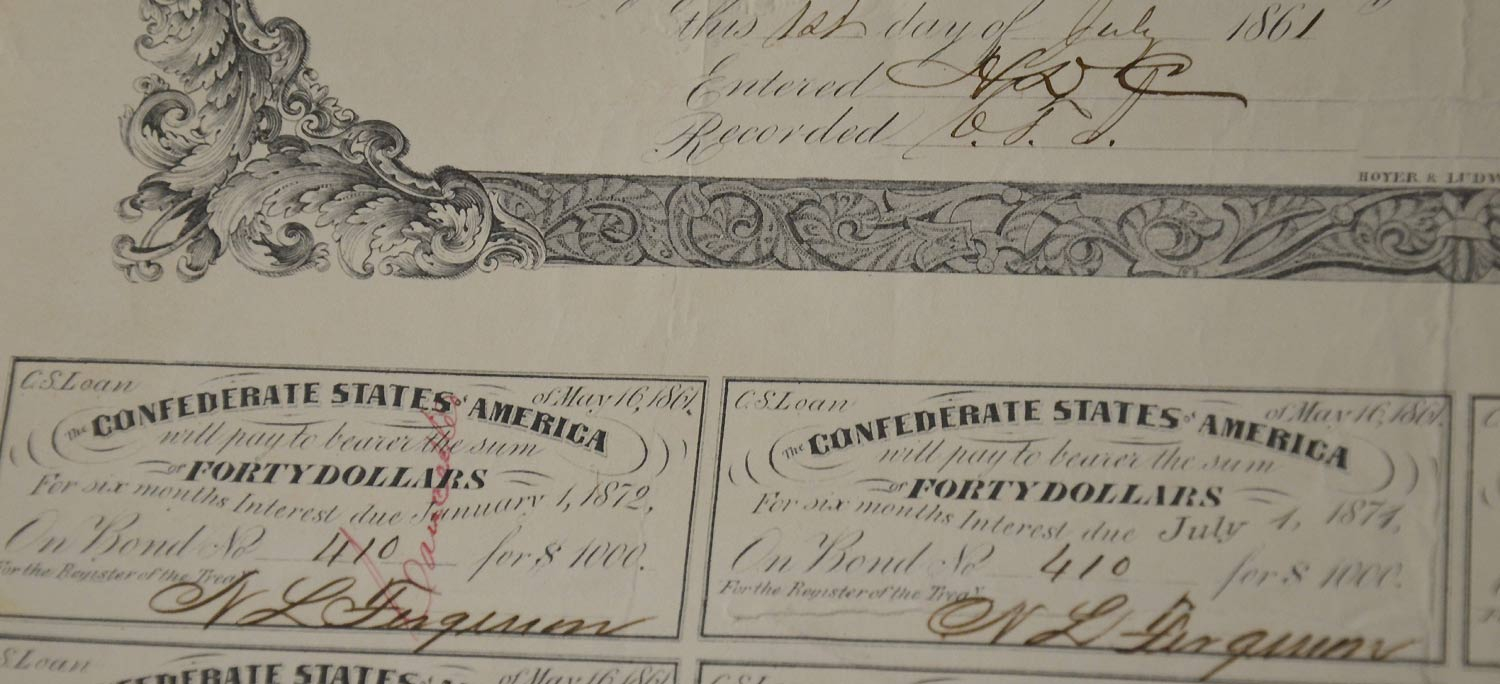 this 1st day of July 1861
Entered H D C
Recorded
HOYER & LUDW
C.S. Loan of May 16, 1861.
The CONFEDERATE STATES of AMERICA
will pay to bearer the sum
of FORTY DOLLARS
For six months Interest due January 1, 1872,
On Bond No 410 for $ 1000.
For the Register of the Treasy
N L Ferguson
C.S. Loan of May 16, 1861.
The CONFEDERATE STATES of AMERICA
will pay to bearer the sum
of FORTY DOLLARS
For six months Interest due July 1, 1871,
On Bond No 410 for $ 1000.
For the Register of the Treasy
N L Ferguson
S. Loan of May 16, 1861
FEDERATE STATES